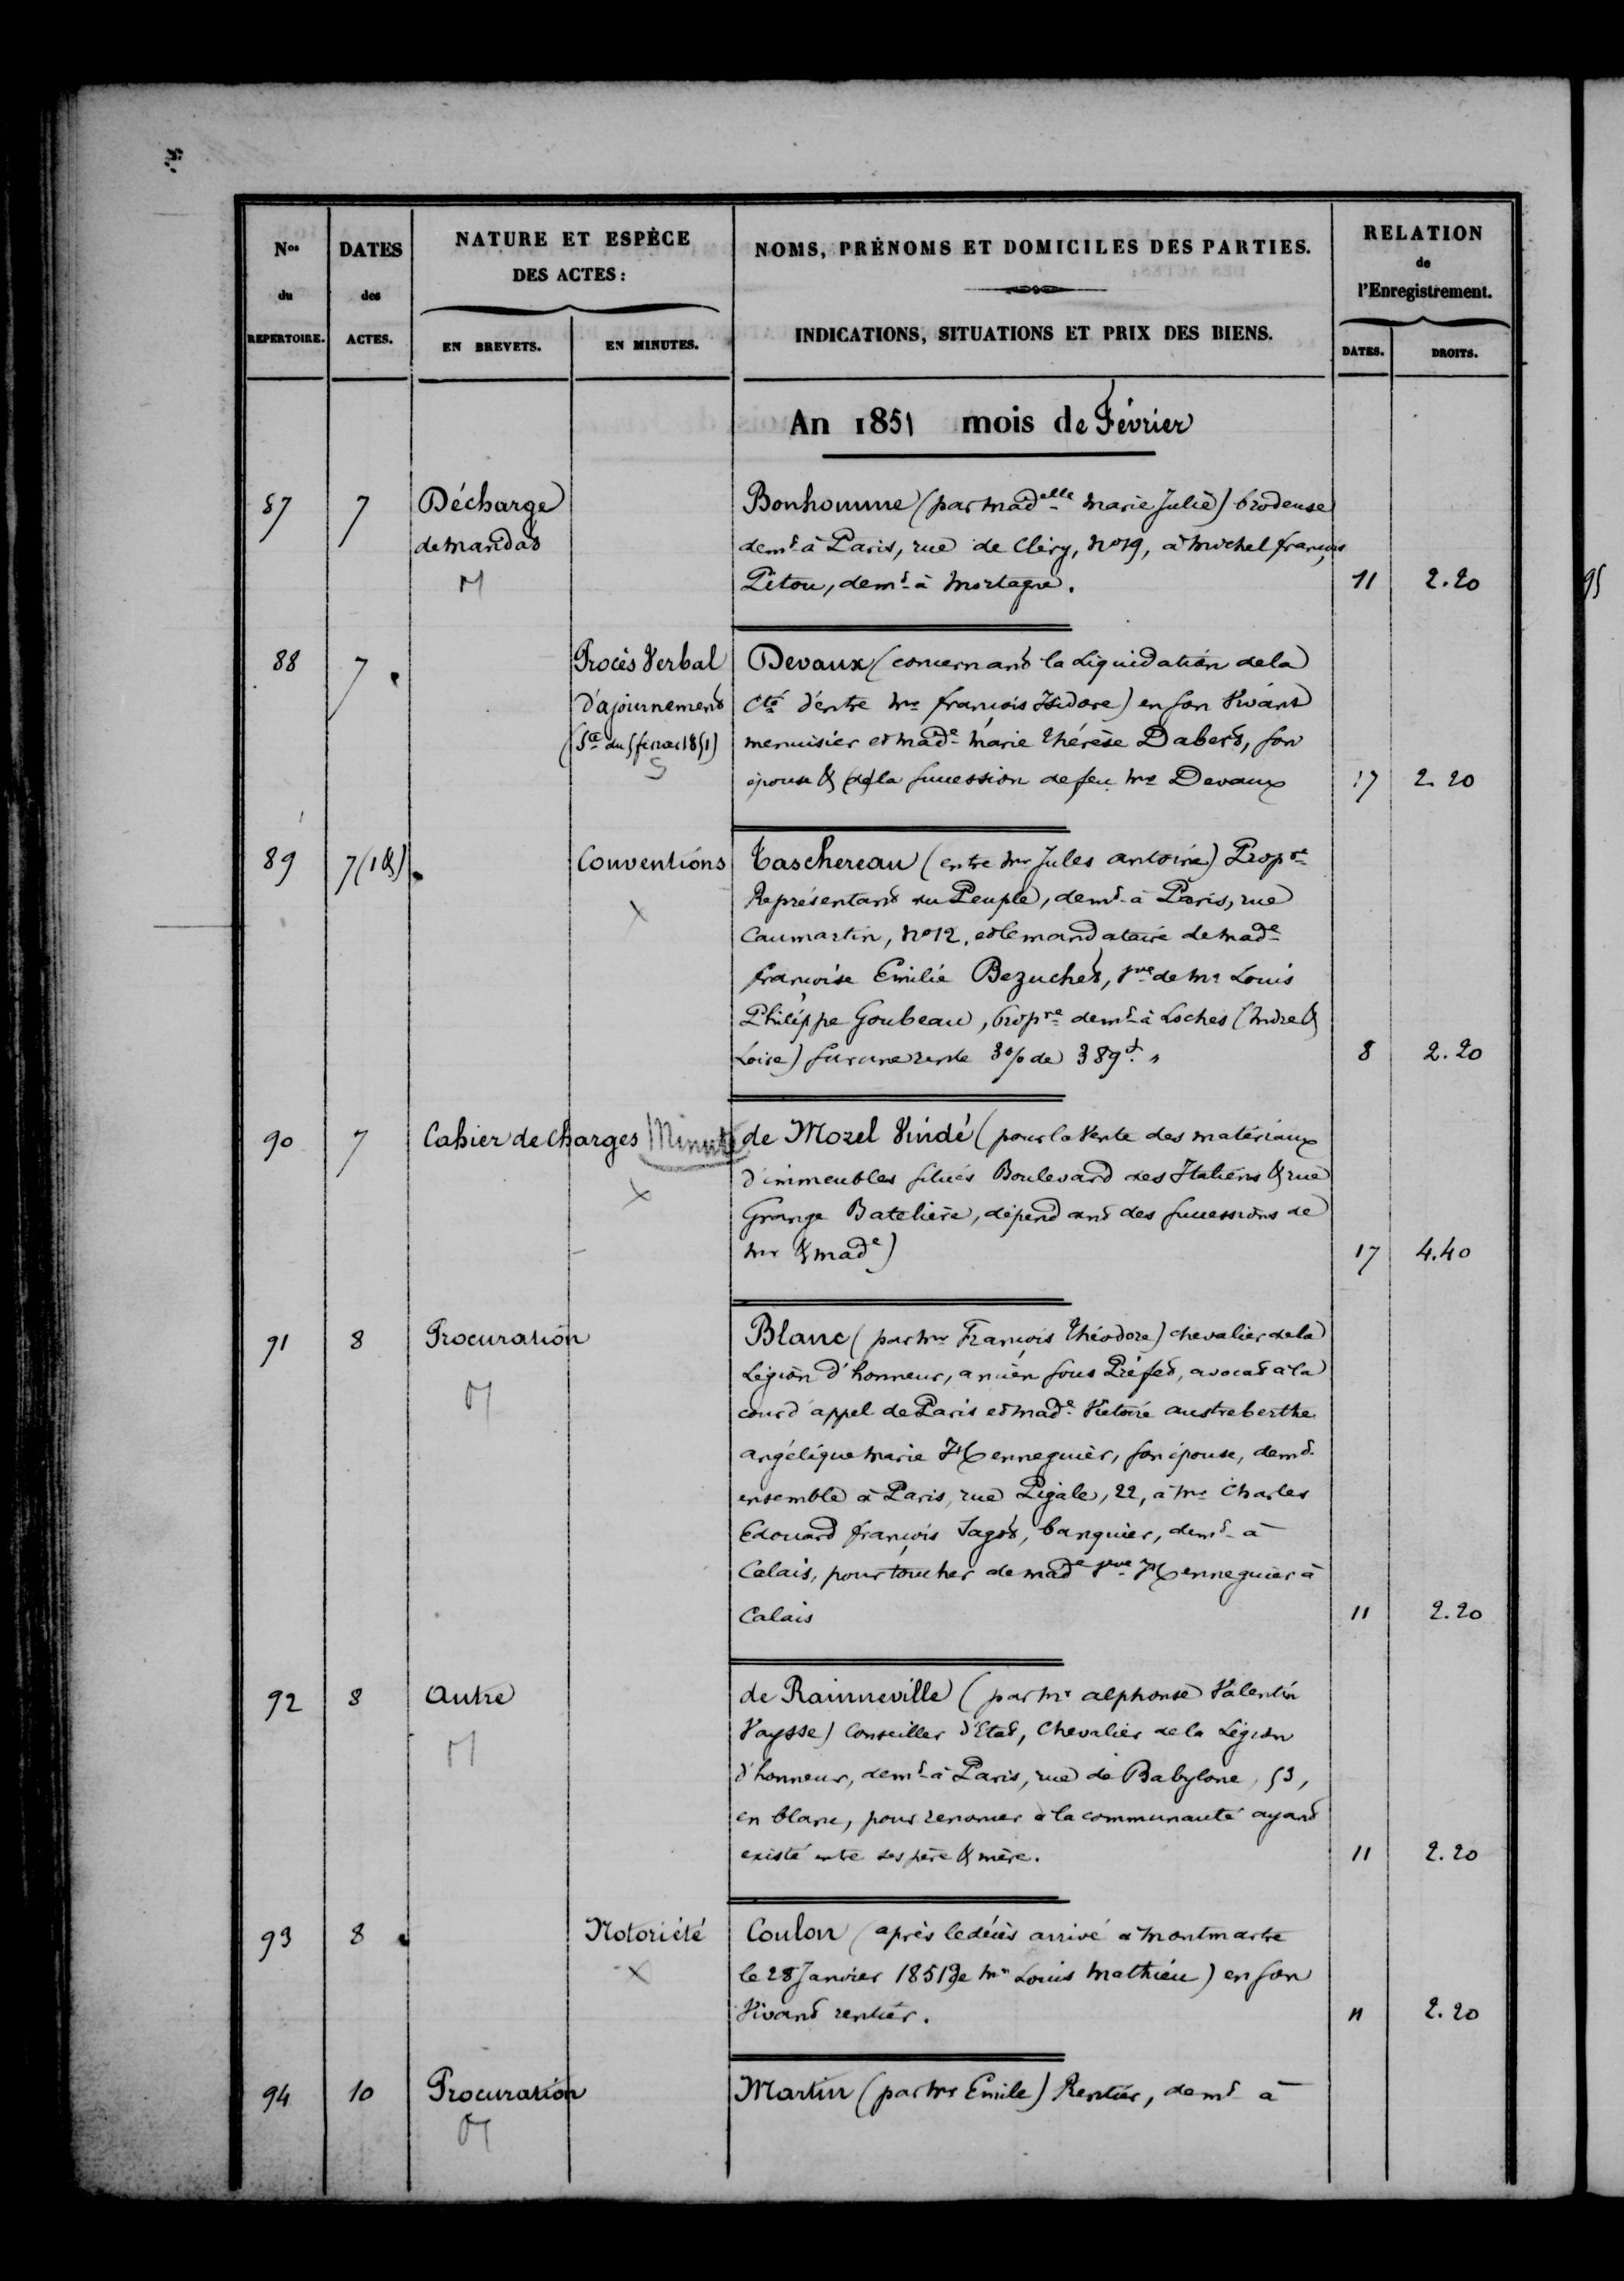 Nos du REPERTOIRE.
DATES des ACTES.
NATURE ET ESPÈCE DES ACTES:
EN BREVETS.
EN MINUTES.
NOMS, PRÉNOMS ET DOMICILES DES PARTIES.
INDICATIONS, SITUATIONS ET PRIX DES BIENS.
RELATION de l'Enregistrement.
DATES.
DROITS.
An 1851 mois de Février
87 7 Décharge Bonhomme (par madelle marie Julie) brodeuse
de mandat demt à Paris, rue de Cléry, no 19, à michel françois
M Pitou, demt à Mortagne. 11 2.20
88 7 Procès Verbal Devaux (concernant la Liquidation de la
d'ajournement Cté d'entre Mr françois Isidore) en son Vivant
(Ste du 5 février 1851) menuisier et made marie thérèse Dabert, son
S épouse & de la succession de feu Mr Devaux 17 2.20
89 7 (1&) Conventions Taschereau (entre Mr Jules antoine) Propre
X Représentant du Peuple, demt à Paris, rue
Caumartin, no 12, et le mandataire de made
françoise Emilie Bezuchet, vve de Mr Louis
Philippe Goubeau, propre demt à Loches (Indre &
Loire) sur une rente 3% de 389f. " 8 2.20
90 7 Cahier de charges Minute de Morel Vindé (pour la Vente des matériaux
X d'immeubles situés Boulevard des Italiens & rue
Grange Batelière, dépendant des successions de
Mr & made) 17 4.40
91 8 Procuration Blanc (par Mr François Théodore) chevalier de la
M Légion d'honneur, ancien sous Préfet, avocat à la
cour d'appel de Paris et made Victoire austreberthe
angélique marie Henneguier, son épouse, demt
ensemble à Paris, rue Pigale, 22, à Mr Charles
Edouard françois Sagot, banquier, demt à
Calais, pour toucher de made vve Henneguier à
Calais 11 2.20
92 8 Autre de Rainneville (par Mr alphonse Valentin
M Vaysse) Conseiller d'Etat, Chevalier de la Légion
d'honneur, demt à Paris, rue de Babylone, 53,
en blanc, pour renoncer à la communauté ayant
existé entre ses père & mère. 11 2.20
93 8 Notoriété Coulon (après le décès arrivé à Montmartre
X le 28 Janvier 1851 de Mr Louis Mathieu) en son
Vivant rentier. 11 2.20
94 10 Procuration Martin (par Mr Emile) Rentier, demt à
M
95